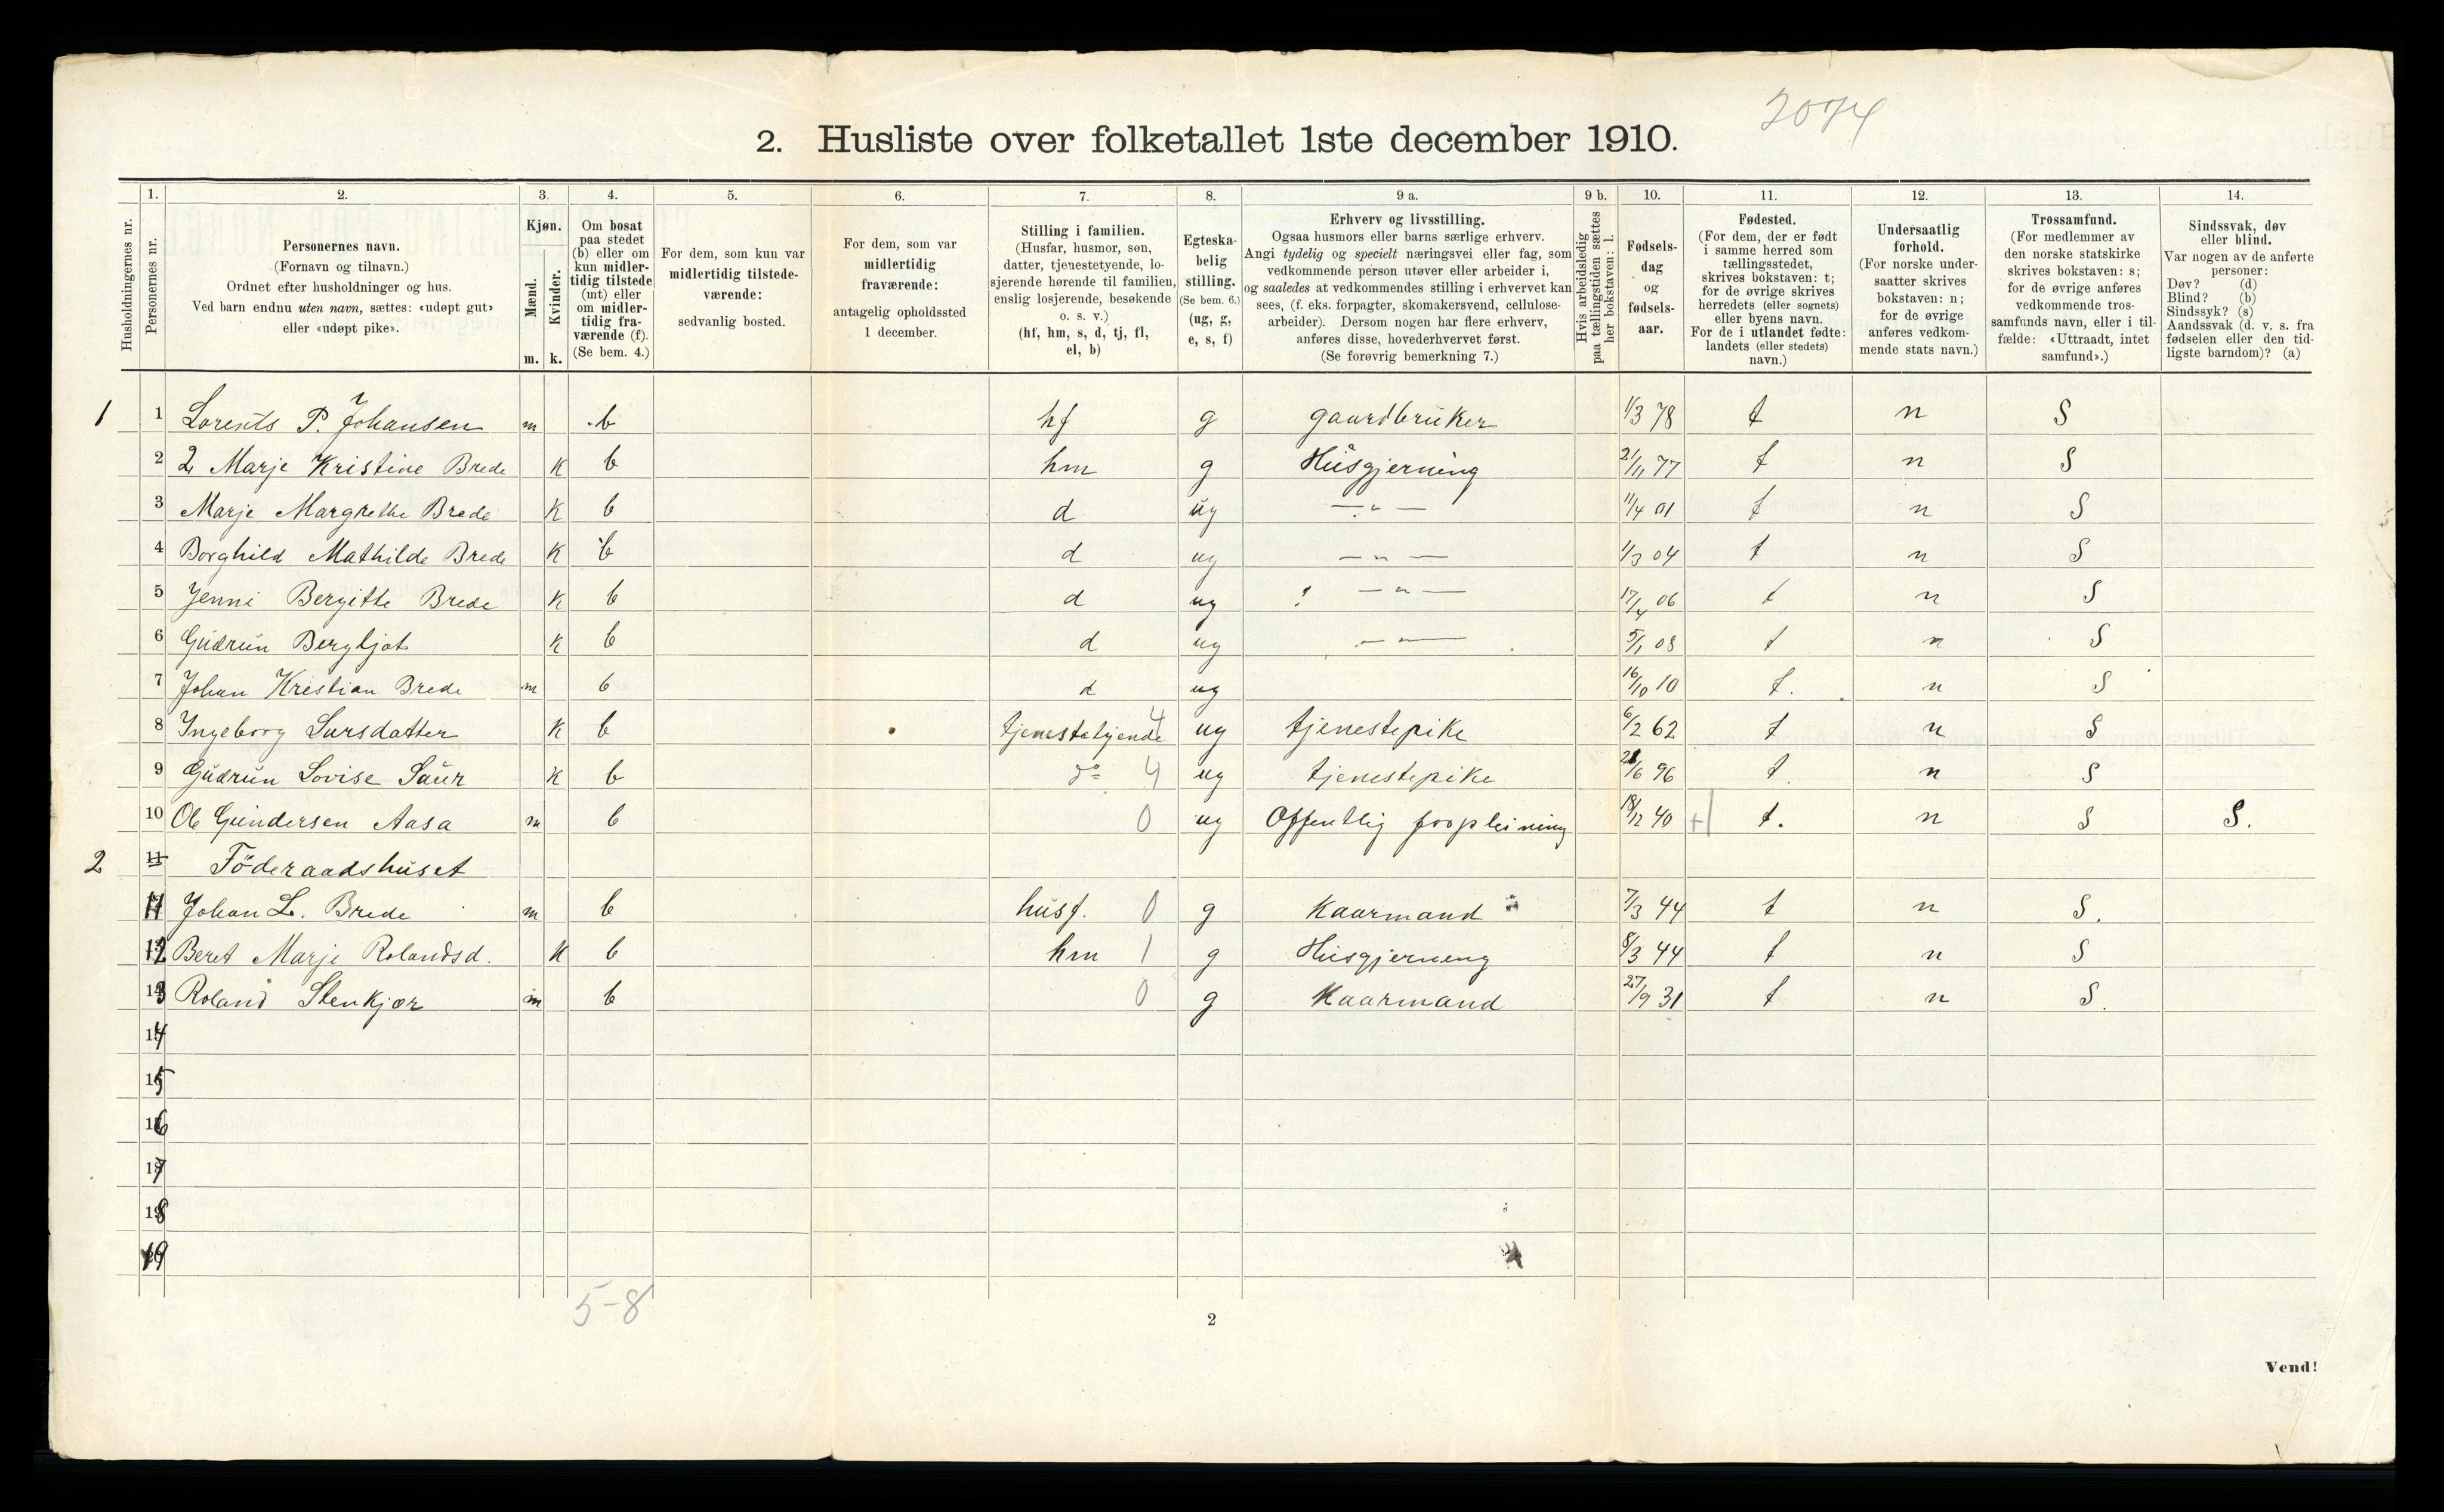 2074
2. Husliste over folketallet 1ste december 1910.
Husholdningernes nr.
1. Personernes nr.
2. Personernes navn.
(Fornavn og tilnavn.)
Ordnet efter husholdninger og hus.
Ved barn endnu uten navn, sættes: «udøpt gut»
eller «udøpt pike».
3. Kjøn.
Mænd. m.
Kvinder. k.
4. Om bosat
paa stedet
(b) eller om
kun midler-
tidig tilstede
(mt) eller
om midler-
tidig fra-
værende (f).
(Se bem. 4.)
5. For dem, som kun var
midlertidig tilstede-
værende:
sedvanlig bosted.
6. For dem, som var
midlertidig
fraværende:
antagelig opholdssted
1 december.
7. Stilling i familien.
(Husfar, husmor, søn,
datter, tjenestetyende, lo-
sjerende hørende til familien,
enslig losjerende, besøkende
o. s. v.)
(hf, hm, s, d, tj, fl,
el, b)
8. Egteska-
belig
stilling.
(Se bem. 6.)
(ug, g,
e, s, f)
9 a. Erhverv og livsstilling.
Ogsaa husmors eller barns særlige erhverv.
Angi tydelig og specielt næringsvei eller fag, som
vedkommende person utøver eller arbeider i,
og saaledes at vedkommendes stilling i erhvervet kan
sees, (f. eks. forpagter, skomakersvend, cellulose-
arbeider). Dersom nogen har flere erhverv,
anføres disse, hovederhvervet først.
(Se forøvrig bemerkning 7.)
9 b. Hvis arbeidsledig
paa tællingstiden sættes
her bokstaven: l.
10. Fødsels-
dag
og
fødsels-
aar.
11. Fødested.
(For dem, der er født
i samme herred som
tællingsstedet,
skrives bokstaven: t;
for de øvrige skrives
herredets (eller sognets)
eller byens navn.
For de i utlandet fødte:
landets (eller stedets)
navn.)
12. Undersaatlig
forhold.
(For norske under-
saatter skrives
bokstaven: n;
for de øvrige
anføres vedkom-
mende stats navn.)
13. Trossamfund.
(For medlemmer av
den norske statskirke
skrives bokstaven: s;
for de øvrige anføres
vedkommende tros-
samfunds navn, eller i til-
fælde: «Uttraadt, intet
samfund».)
14. Sindssvak, døv
eller blind.
Var nogen av de anførte
personer:
Døv? (d)
Blind? (b)
Sindssyk? (s)
Aandssvak (d. v. s. fra
fødselen eller den tid-
ligste barndom)? (a)
1 1 Lorents P. Johansen m b hf g gaardbruker 1/3 78 t n S
2 2 Marje Kristine Brede k b hm g Husgjerning 21/11 77 t n S
3 Marje Margrethe Brede k b d ug —"— 11/4 01 t n S
4 Borghild Mathilde Brede k b d ug —"— 1/3 04 t n S
5 Jenni Bergitte Brede k b d ug —"— 17/4 06 t n S
6 Gudrun Bergljot k b d ug —"— 5/1 08 t n S
7 Johan Kristian Brede m b d ug 16/10 10 t. n S
8 Ingeborg Lursdatter k b tjenestetyende 4 ug tjenestepike 6/2 62 t n S
9 Gudrun Lovise Saur k b do 4 ug tjenestepike 21/6 96 t. n S
10 Ole Gundersen Aasa m b 0 ug Offentlig forpleining 18/12 40 t. n S S.
2 11 Föderaadshuset
11 Johan L. Brede m b husf. 0 g Kaarmand 7/3 44 t n S.
12 Beret Marje Rolandsd. k b hm 1 g Husgjerning 8/3 44 t n S
13 Roland Stenkjær m b 0 g Kaarmand 27/9 31 t n S.
14
15
16
17
18
19
5-8
2
Vend!